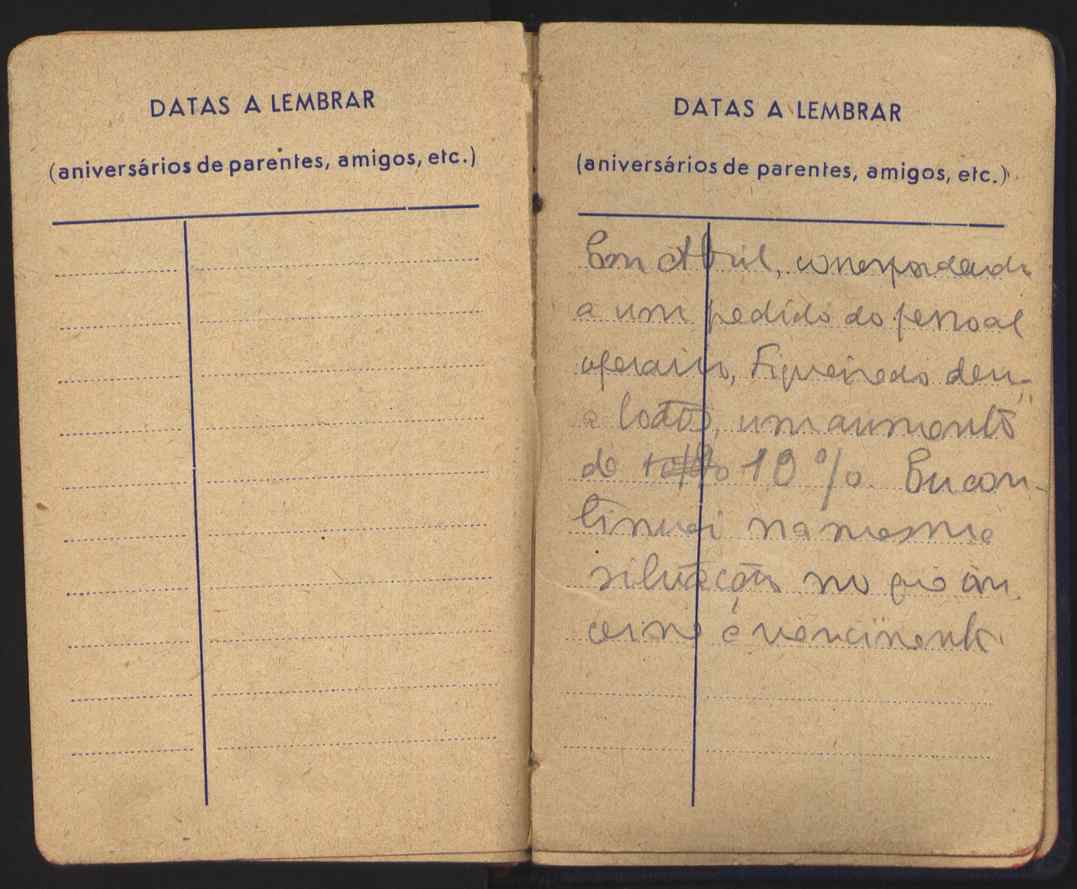 DATAS A LEMBRAR
(aniversários de parentes, amigos, etc.)
DATAS A LEMBRAR
(aniversários de parentes, amigos, etc.)
Em Abril, correspondendo
a um pedido do pessoal
operario, Figueiredo deu,
a todos, um aumento
de 10 %. Eu con-
tinuei na mesma
situação no que
cerne a vencimento.